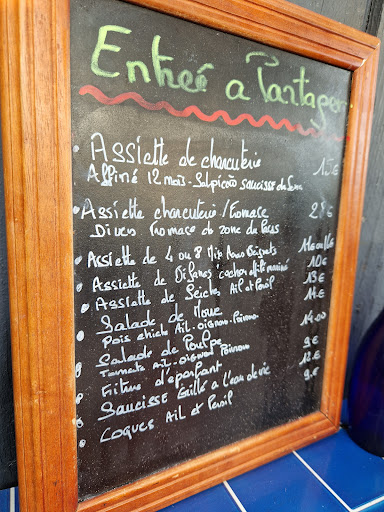 Entrée a Partager
Assiette de charcuterie 15€
Affiné 12 mois - Salpicao Saucisse de
Assiette charcuterie / Fromage 25€
Divers fromage de zone du Pays
Assiette de 4 ou 8 Mix Beignets
Assiette de cochon 10€
Assiette de Seiche Ail et Persil 13€
Salade de Morue 14€
Pois chiche Ail - oignon - Poivron
Salade de Poulpe 14.00
Tomate Ail - oignon Poivron
Friture d'éperlant 9€
Saucisse Grillé a l'eau de vie 12€
Coques Ail et Persil 9€